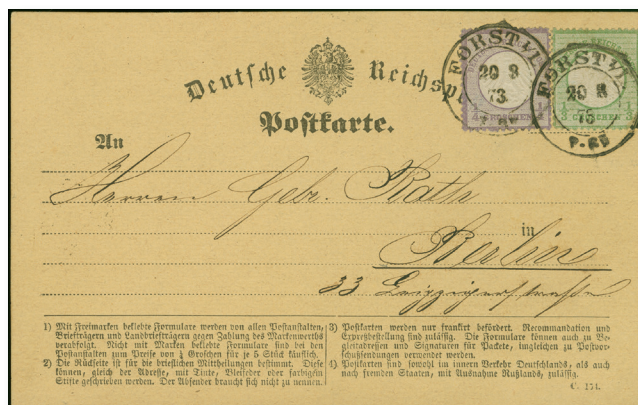 Deutsche Reichspost
Postkarte.
An
Herren Gebr. Rath
in
Berlin
33 Leipzigerstraße
FORST I/L
20 8
73
FORST I/L
20 8
73
GROSCHEN
GROSCHEN
1) Mit Freimarken beklebte Formulare werden von allen Postanstalten,
Briefträgern und Landbriefträgern gegen Zahlung des Markenwerths
verabfolgt. Nicht mit Marken beklebte Formulare sind bei den
Postanstalten zum Preise von ¼ Groschen für je 5 Stück käuflich.
2) Die Rückseite ist für die brieflichen Mittheilungen bestimmt. Diese
können, gleich der Adresse, mit Tinte, Bleifeder oder farbigem
Stifte geschrieben werden. Der Absender braucht sich nicht zu nennen.
3) Postkarten werden nur frankirt befördert. Recommandation und
Expreßbestellung sind zulässig. Die Formulare können auch zu Be-
gleitadressen und Signaturen für Packete, imgleichen zu Postvor-
schußsendungen verwendet werden.
4) Postkarten sind sowohl im innern Verkehr Deutschlands, als auch
nach fremden Staaten, mit Ausnahme Rußlands, zulässig.
C. 154.